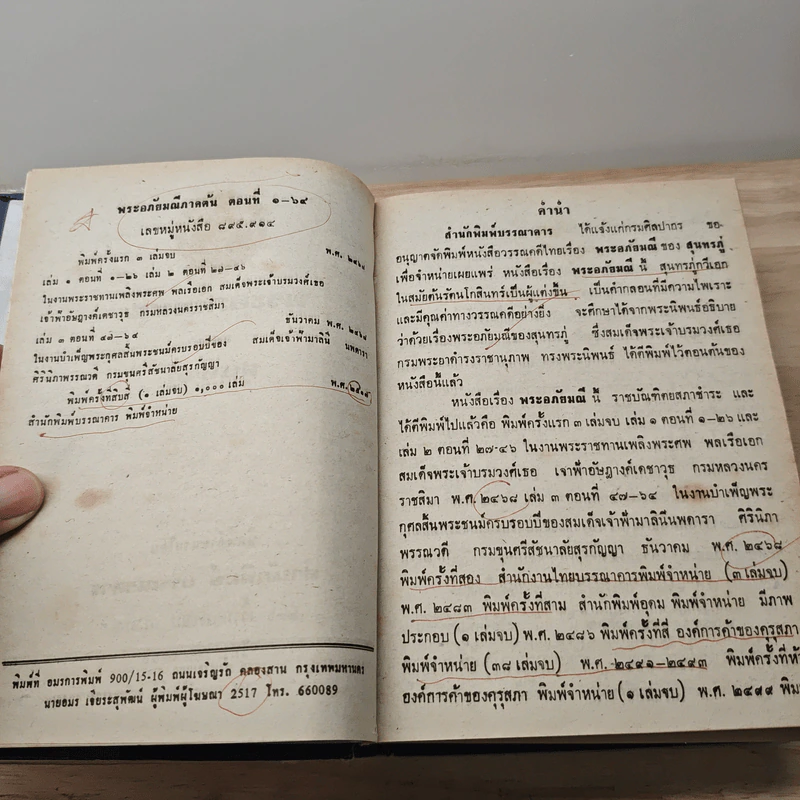 พระอภัยมณีภาคต้น ตอนที่ ๑-๖๔
เลขหมู่หนังสือ ๘๙๕.๙๑๔
พิมพ์ครั้งแรก ๓ เล่มจบ พ.ศ. ๒๔๖๘
เล่ม ๑ ตอนที่ ๑-๒๖ เล่ม ๒ ตอนที่ ๒๗-๔๖
ในงานพระราชทานเพลิงพระศพ พลเรือเอก สมเด็จพระเจ้าบรมวงศ์เธอ
เจ้าฟ้าอัษฎางค์เดชาวุธ กรมหลวงนครราชสิมา
เล่ม ๓ ตอนที่ ๔๗-๖๔ ธันวาคม พ.ศ. ๒๔๖๘
ในงานบำเพ็ญพระกุศลสิ้นพระชนม์ครบรอบปีของ สมเด็จเจ้าฟ้ามาลินี นพดารา
ศิรินิภาพรรณวดี กรมขุนศรีสัชนาลัยสุรกัญญา
พิมพ์ครั้งที่สิบสี่ (๑ เล่มจบ) ๑,๐๐๐ เล่ม พ.ศ.
สำนักพิมพ์บรรณาคาร พิมพ์จำหน่าย
พิมพ์ที่ อมรการพิมพ์ 900/15-16 ถนนเจริญรัถ คลองสาน กรุงเทพมหานคร
นายอมร เจียระสุพัฒน์ ผู้พิมพ์ผู้โฆษณา 2517 โทร. 660089
คำนำ
สำนักพิมพ์บรรณาคาร ได้แจ้งแก่กรมศิลปากร ขอ
อนุญาตจัดพิมพ์หนังสือวรรณคดีไทยเรื่อง พระอภัยมณี ของ สุนทรภู่
เพื่อจำหน่ายเผยแพร่ หนังสือเรื่อง พระอภัยมณี นี้ สุนทรภู่กวีเอก
ในสมัยต้นรัตนโกสินทร์เป็นผู้แต่งขึ้น เป็นคำกลอนที่มีความไพเราะ
และมีคุณค่าทางวรรณคดีอย่างยิ่ง จะศึกษาได้จากพระนิพนธ์อธิบาย
ว่าด้วยเรื่องพระอภัยมณีของสุนทรภู่ ซึ่งสมเด็จพระเจ้าบรมวงศ์เธอ
กรมพระยาดำรงราชานุภาพ ทรงพระนิพนธ์ ได้ตีพิมพ์ไว้ตอนต้นของ
หนังสือนี้แล้ว
หนังสือเรื่อง พระอภัยมณี นี้ ราชบัณฑิตยสภาชำระ และ
ได้ตีพิมพ์ไปแล้วคือ พิมพ์ครั้งแรก ๓ เล่มจบ เล่ม ๑ ตอนที่ ๑-๒๖ และ
เล่ม ๒ ตอนที่ ๒๗-๔๖ ในงานพระราชทานเพลิงพระศพ พลเรือเอก
สมเด็จพระเจ้าบรมวงศ์เธอ เจาฟ้าอัษฎางค์เดชาวุธ กรมหลวงนคร
ราชสิมา พ.ศ. ๒๔๖๘ เล่ม ๓ ตอนที่ ๔๗-๖๔ ในงานบำเพ็ญพระ
กุศลสิ้นพระชนม์ครบรอบปีของสมเด็จเจ้าฟ้ามาลินีนพดารา ศิรินิภา
พรรณวดี กรมขุนศรีสัชนาลัยสุรกัญญา ธันวาคม พ.ศ. ๒๔๖๘
พิมพ์ครั้งที่สอง สำนักงานไทยบรรณาคารพิมพ์จำหน่าย (๓ เล่มจบ)
พ.ศ. ๒๔๘๓ พิมพ์ครั้งที่สาม สำนักพิมพ์อุดม พิมพ์จำหน่าย มีภาพ
ประกอบ (๑ เล่มจบ) พ.ศ. ๒๔๘๖ พิมพ์ครั้งที่สี่ องค์การค้าของคุรุสภา
พิมพ์จำหน่าย (๓๘ เล่มจบ) พ.ศ. ๒๔๙๑-๒๔๙๓ พิมพ์ครั้งที่ห้า
องค์การค้าของคุรุสภา พิมพ์จำหน่าย (๑ เล่มจบ) พ.ศ. ๒๔๙๙ พิม